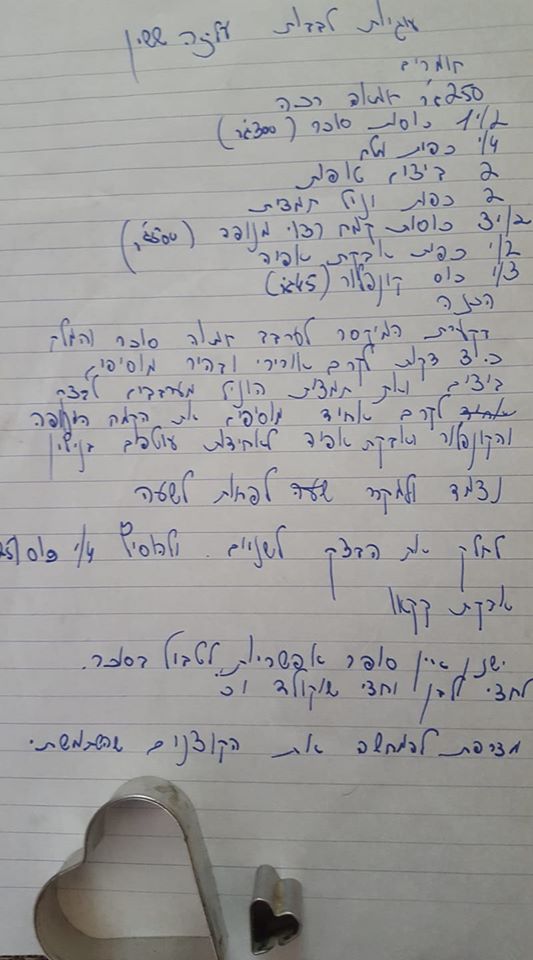 עוגיות לבבות עליזה ששון
חומרים
250 גר חמאה רכה
1 1/2 כוסות סוכר (300 גר)
1/4 כפית מלח
2 ביצים טרופות
2 כפות וניל תמצית
3 1/2 כוסות קמח רצוי מנופה (500 גר)
1/2 כפית אבקת אפיה
1/3 כוס קורנפלור (45 גר)
הכנה
בקערת המיקסר לערבב חמאה סוכר והמלח
כ. 3 דקות לקרם אוורירי ובהיר מוסיפים
ביצים ואת תמצית הוניל מערבבים לבצק
לקרם אחיד מוסיפים את הקמח המנופה
והקורנפלור ואבקת אפיה לאחידות עוטפים בניילון
נצמד ולמקרר שעה לפחות לשעה
לחלק את הבצק לשניים. ולהוסיף 1/4 כוס 25
אבקת קקאו
ישנן אין סופר אפשרויות לטבול בסוכר.
לחצי לבן וחצי שוקולד וכ'
מצרפת להמחשה את הקורצנים שהשתמשתי.